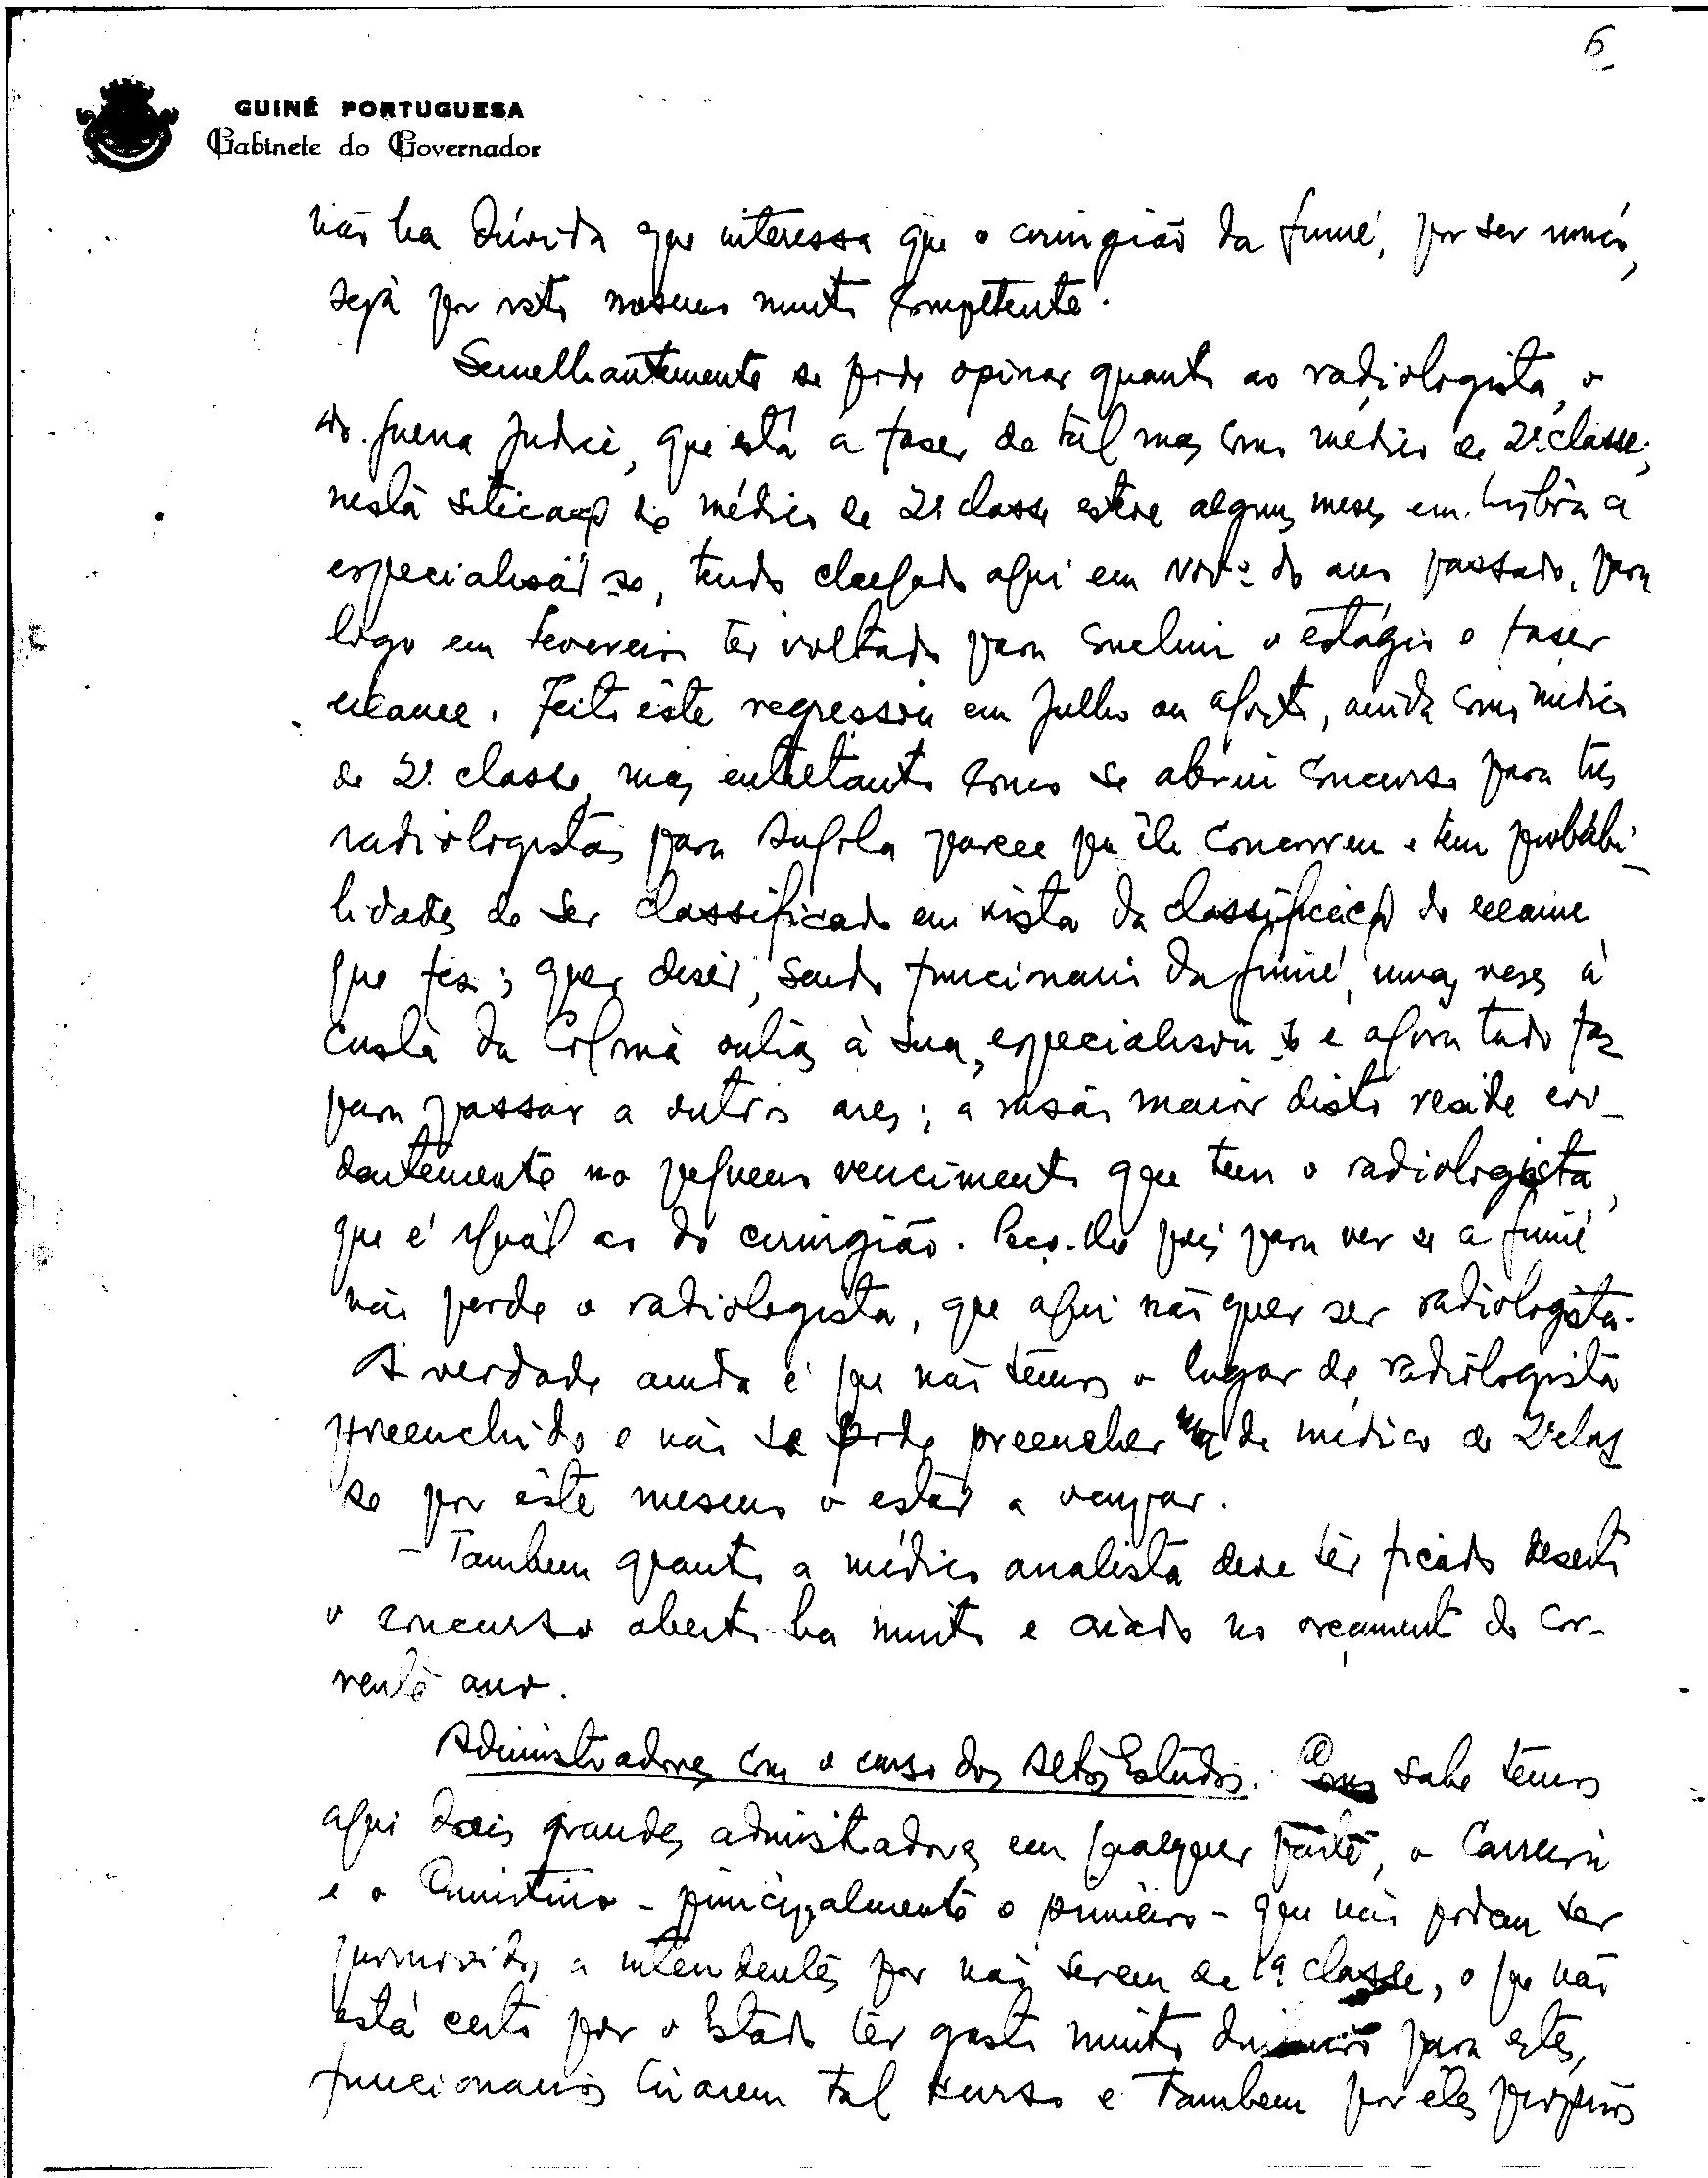 6
GUINÉ PORTUGUESA
Gabinete do Governador
não ha dúvida que interessa que o cirurgião da Guiné, por ser unico,
seja por isto mesmo muito competente.
Semelhantemente se pode opinar quanto ao radiologista, o
Judice, que está a faser de tal mas como médico de 2ª classe;
nesta situação de médico de 2ª classe esteve alguns meses em Lisbôa a
especialisar-se, tendo chegado aqui em Novº do ano passado, para
logo em Fevereiro ter voltado para concluir o estágio e faser
exame. Feito êste regressou em Julho ou Agosto, ainda como médico
de 2ª classe, mas entretanto como se abriu concurso para três
radiologistas para Angola parece que êle concorreu e tem probabi-
lidades de ser classificado em vista da classificação do exame
que fez; quer diser, sendo funcionario da Guiné, umas veses á
custa da Colonia outras à sua, especialisou-se e agora tudo faz
para passar a outros ares; a rasão maior disto reside evi-
dentemente no pequeno vencimento que tem o radiologista,
que é igual ao do cirurgião. Peço-lhe pois para ver se a Guiné
não perde o radiologista, que aqui não quer ser radiologista.
A verdade ainda é que não temos o lugar de radiologista
preenchido e não se pode preencher o de médico de 2ª clas
se por êste mesmo o estar a ocupar.
- Tambem quanto a médico analista deve ter ficado deserto
o concurso aberto ha muito e criado no orçamento do cor-
rente ano.
Administradores com o curso dos Altos Estudos. Como sabe temos
aqui dois grandes administradores em qualquer parte, o Carreira
e o - principalmente o primeiro - que não podem ser
promovidos a intendentes por não serem de 1ª classe, o que não
está certo por o Estado ter gasto muito dinheiro para estes,
funcionarios tirarem tal curso e tambem por êles proprios